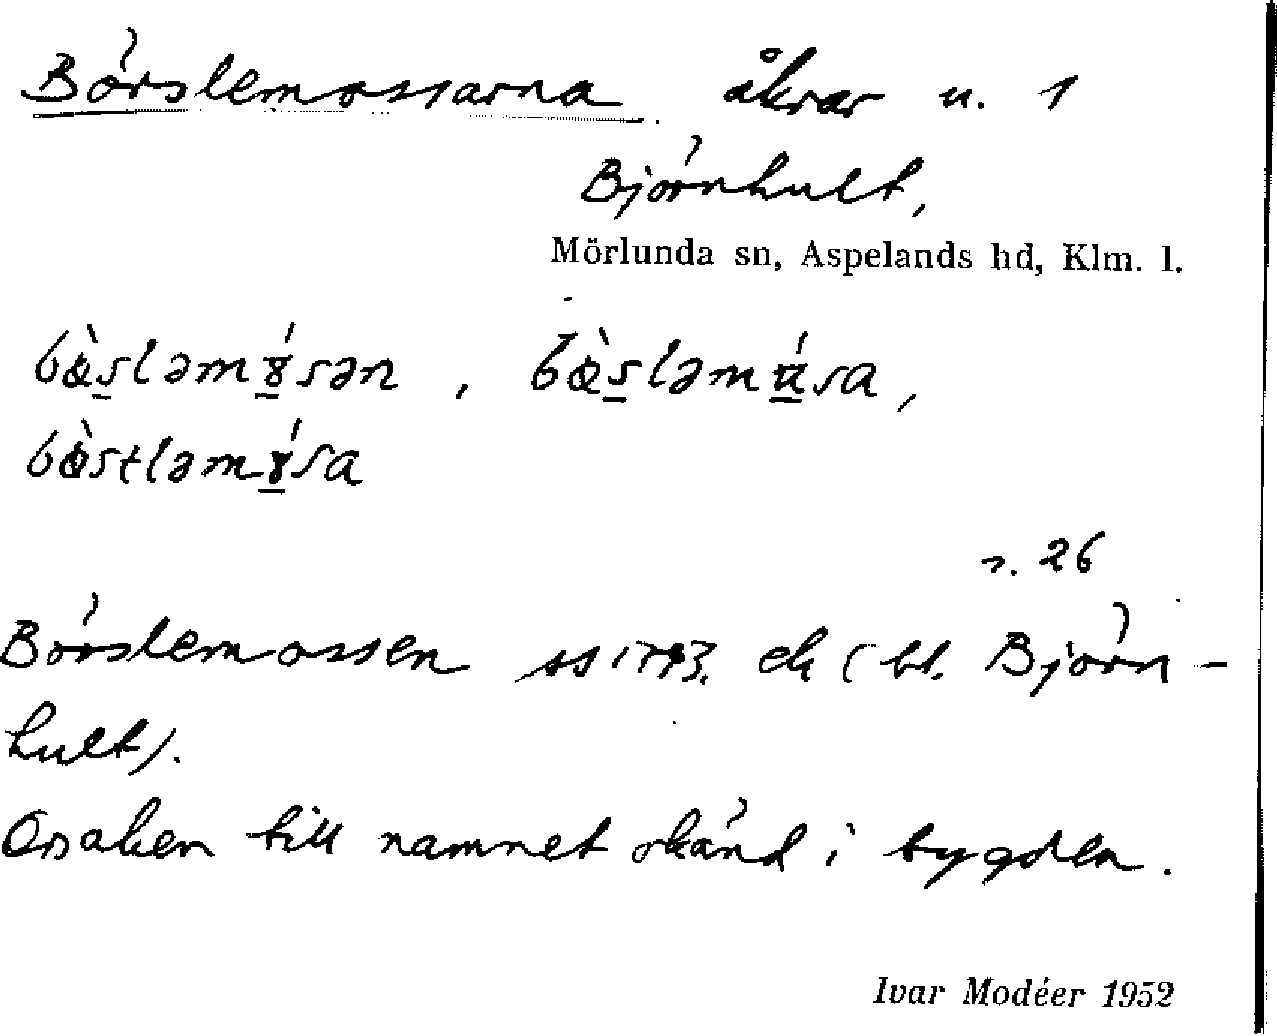 Börslemossarna åkrar n. 1
Björnhult,
Mörlunda sn, Aspelands hd, Klm. l.
bœ̀slәmɤ́sәn, bœ̀slәmú̱sa,
bœ̀stlәmɤ́sa
n. 26
Börslemossen ss 1793. ek (bl. Björn-
hult).
Orsaken till namnet okänd i bygden.
Ivar Modéer 1952